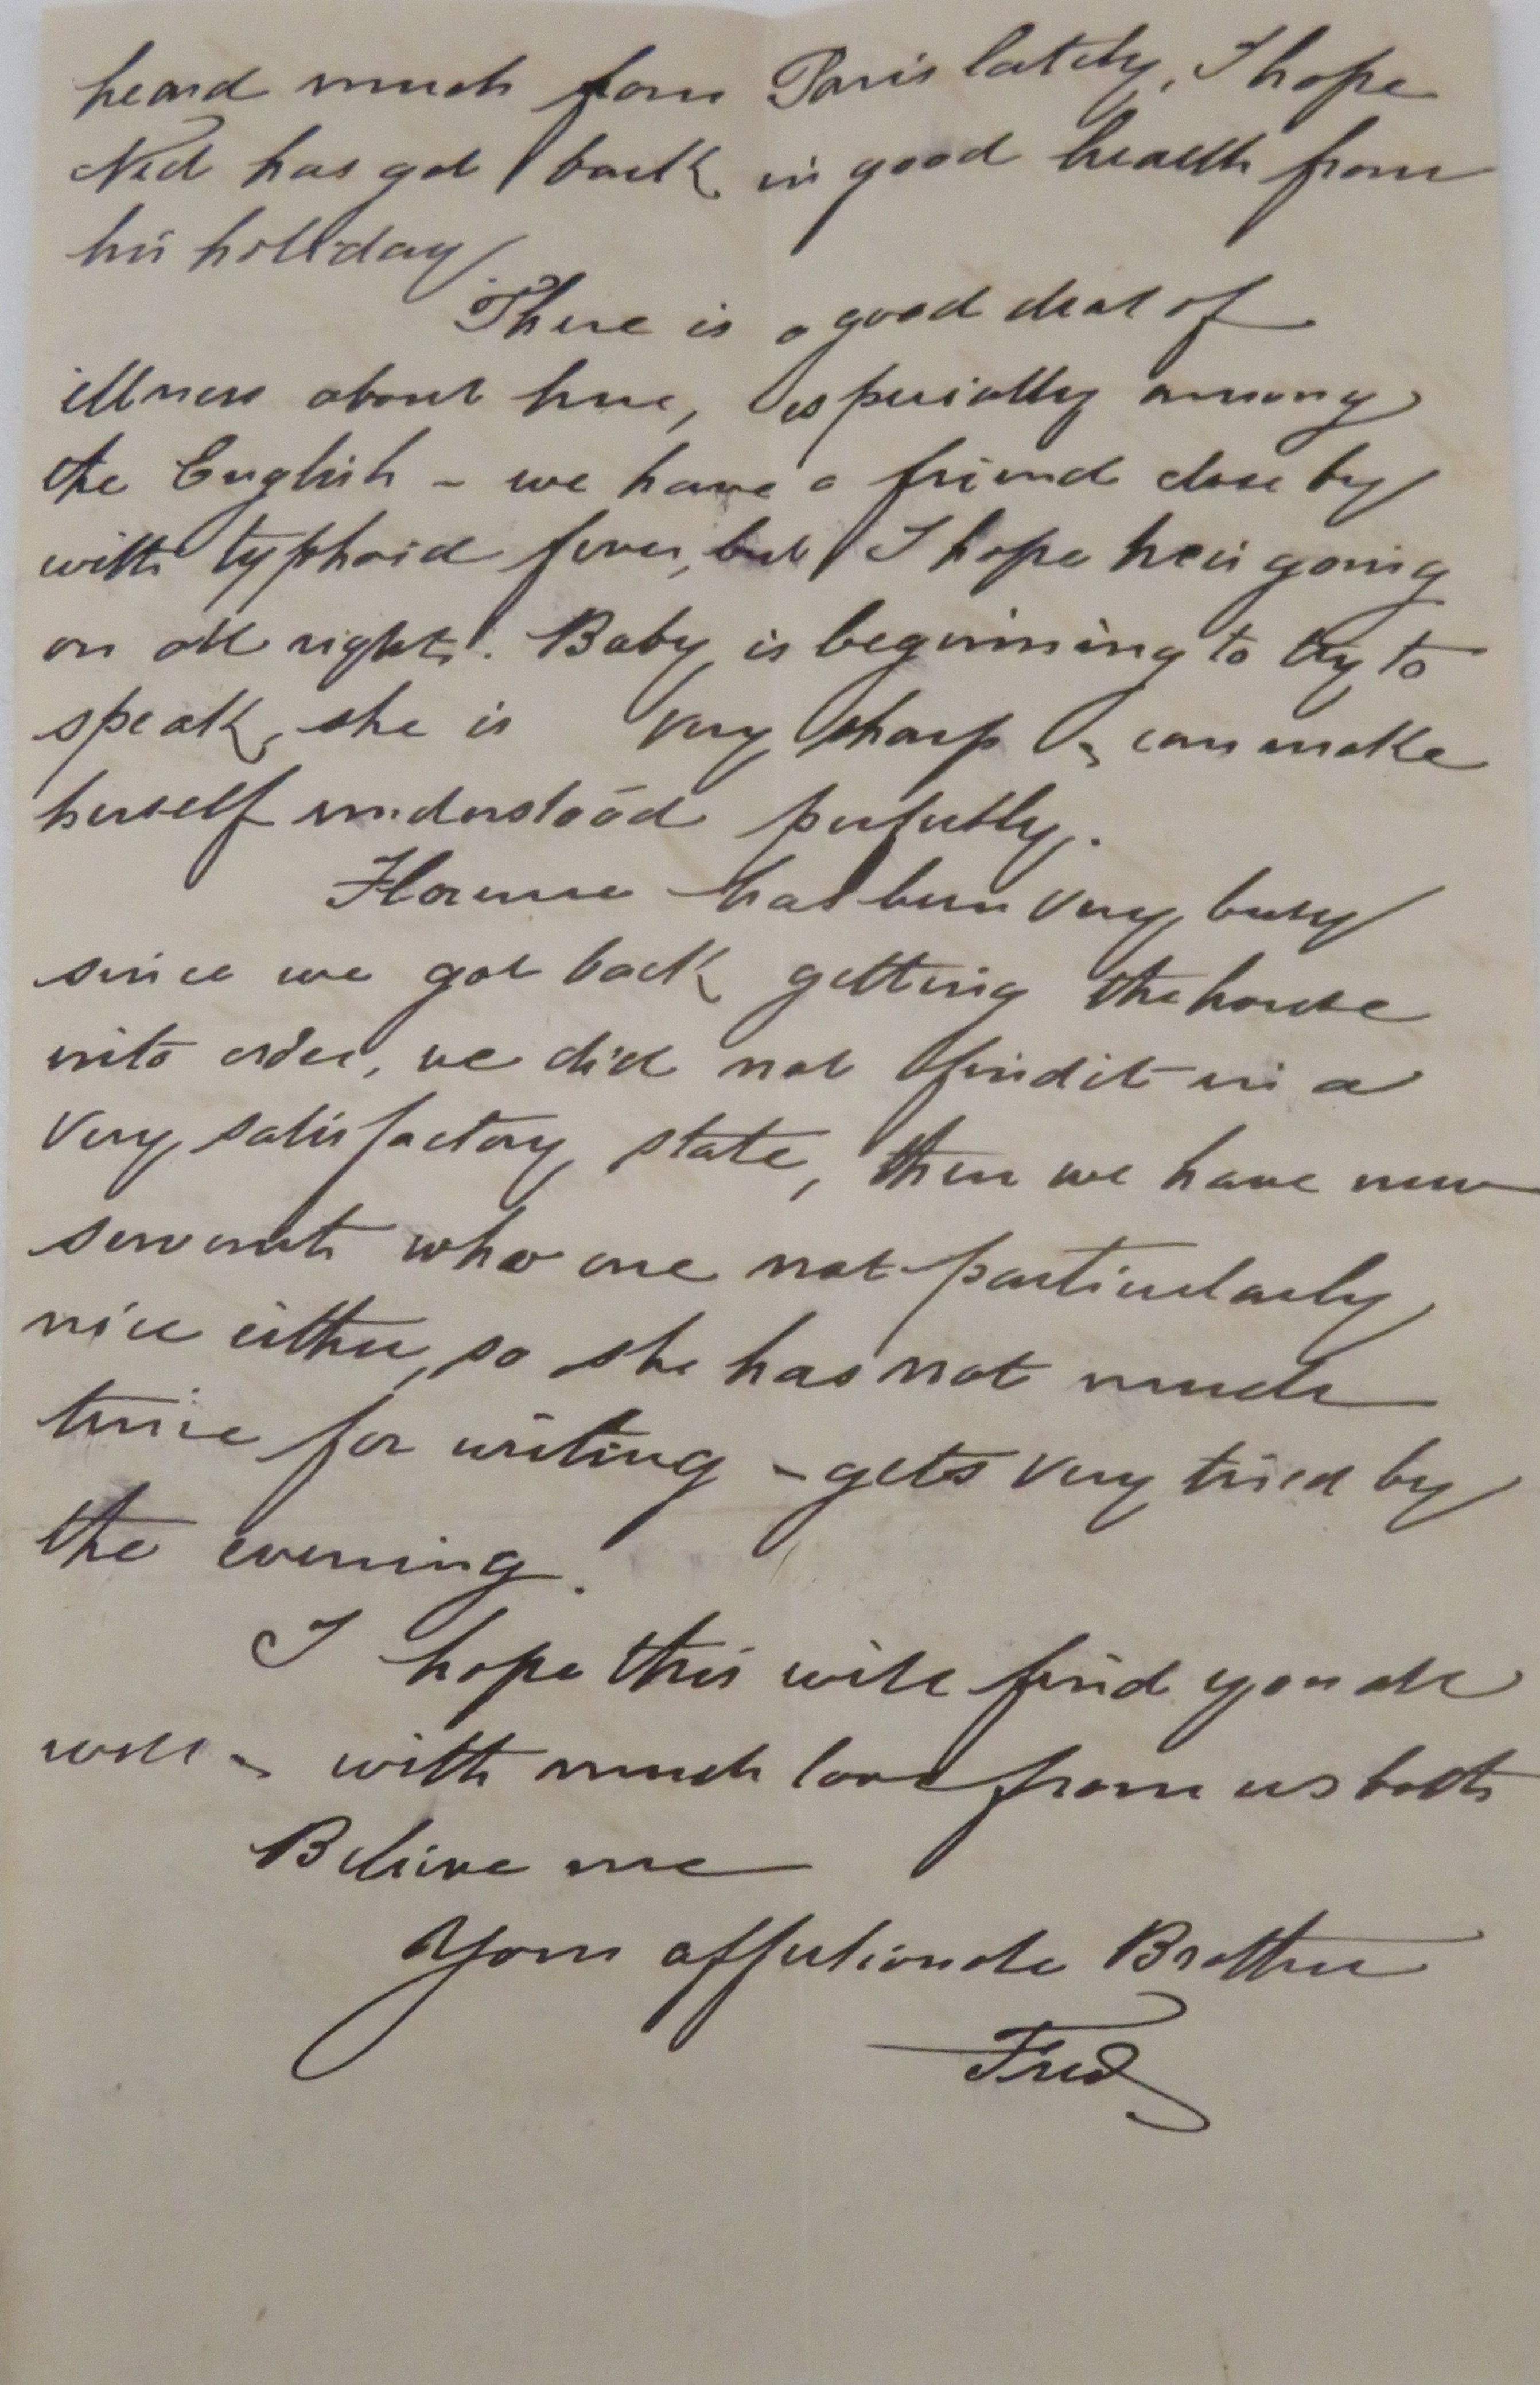 heard much from Paris lately, I hope
Ned has got back in good health from
his holiday
There is a good deal of
illness about here, especially among
the English - we have a friend close by
with typhoid fever, but I hope he is going
on all right. Baby is beginning to try to
speak, she is very sharp & can make
herself understood perfectly.
Florence has been very busy
since we got back getting the house
into order, we did not find it in a
very satisfactory state, then we have new
servants who are not particularly
nice either, so she has not much
time for writing & gets very tired by
the evening.
I hope this will find you all
well & with much love from us both
Believe me
Your affectionate Brother
Fred